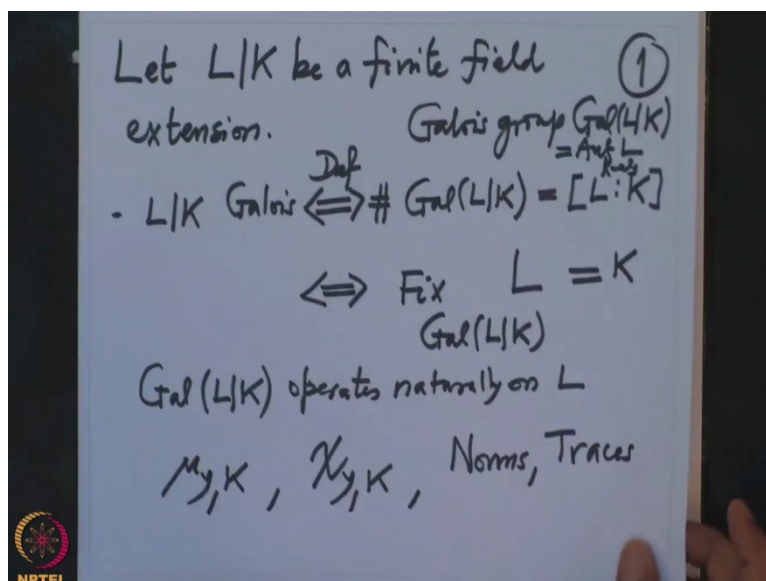 Let L|K be a finite field ①
extension. Galois group Gal(L|K)
= Aut L
K-alg
Def
· L|K Galois ⟺ # Gal(L|K) = [L:K]
⟺ Fix L = K
Gal(L|K)
Gal(L|K) operates naturally on L
μ_{y,K} , χ_{y,K} , Norms, Traces
NPTEL